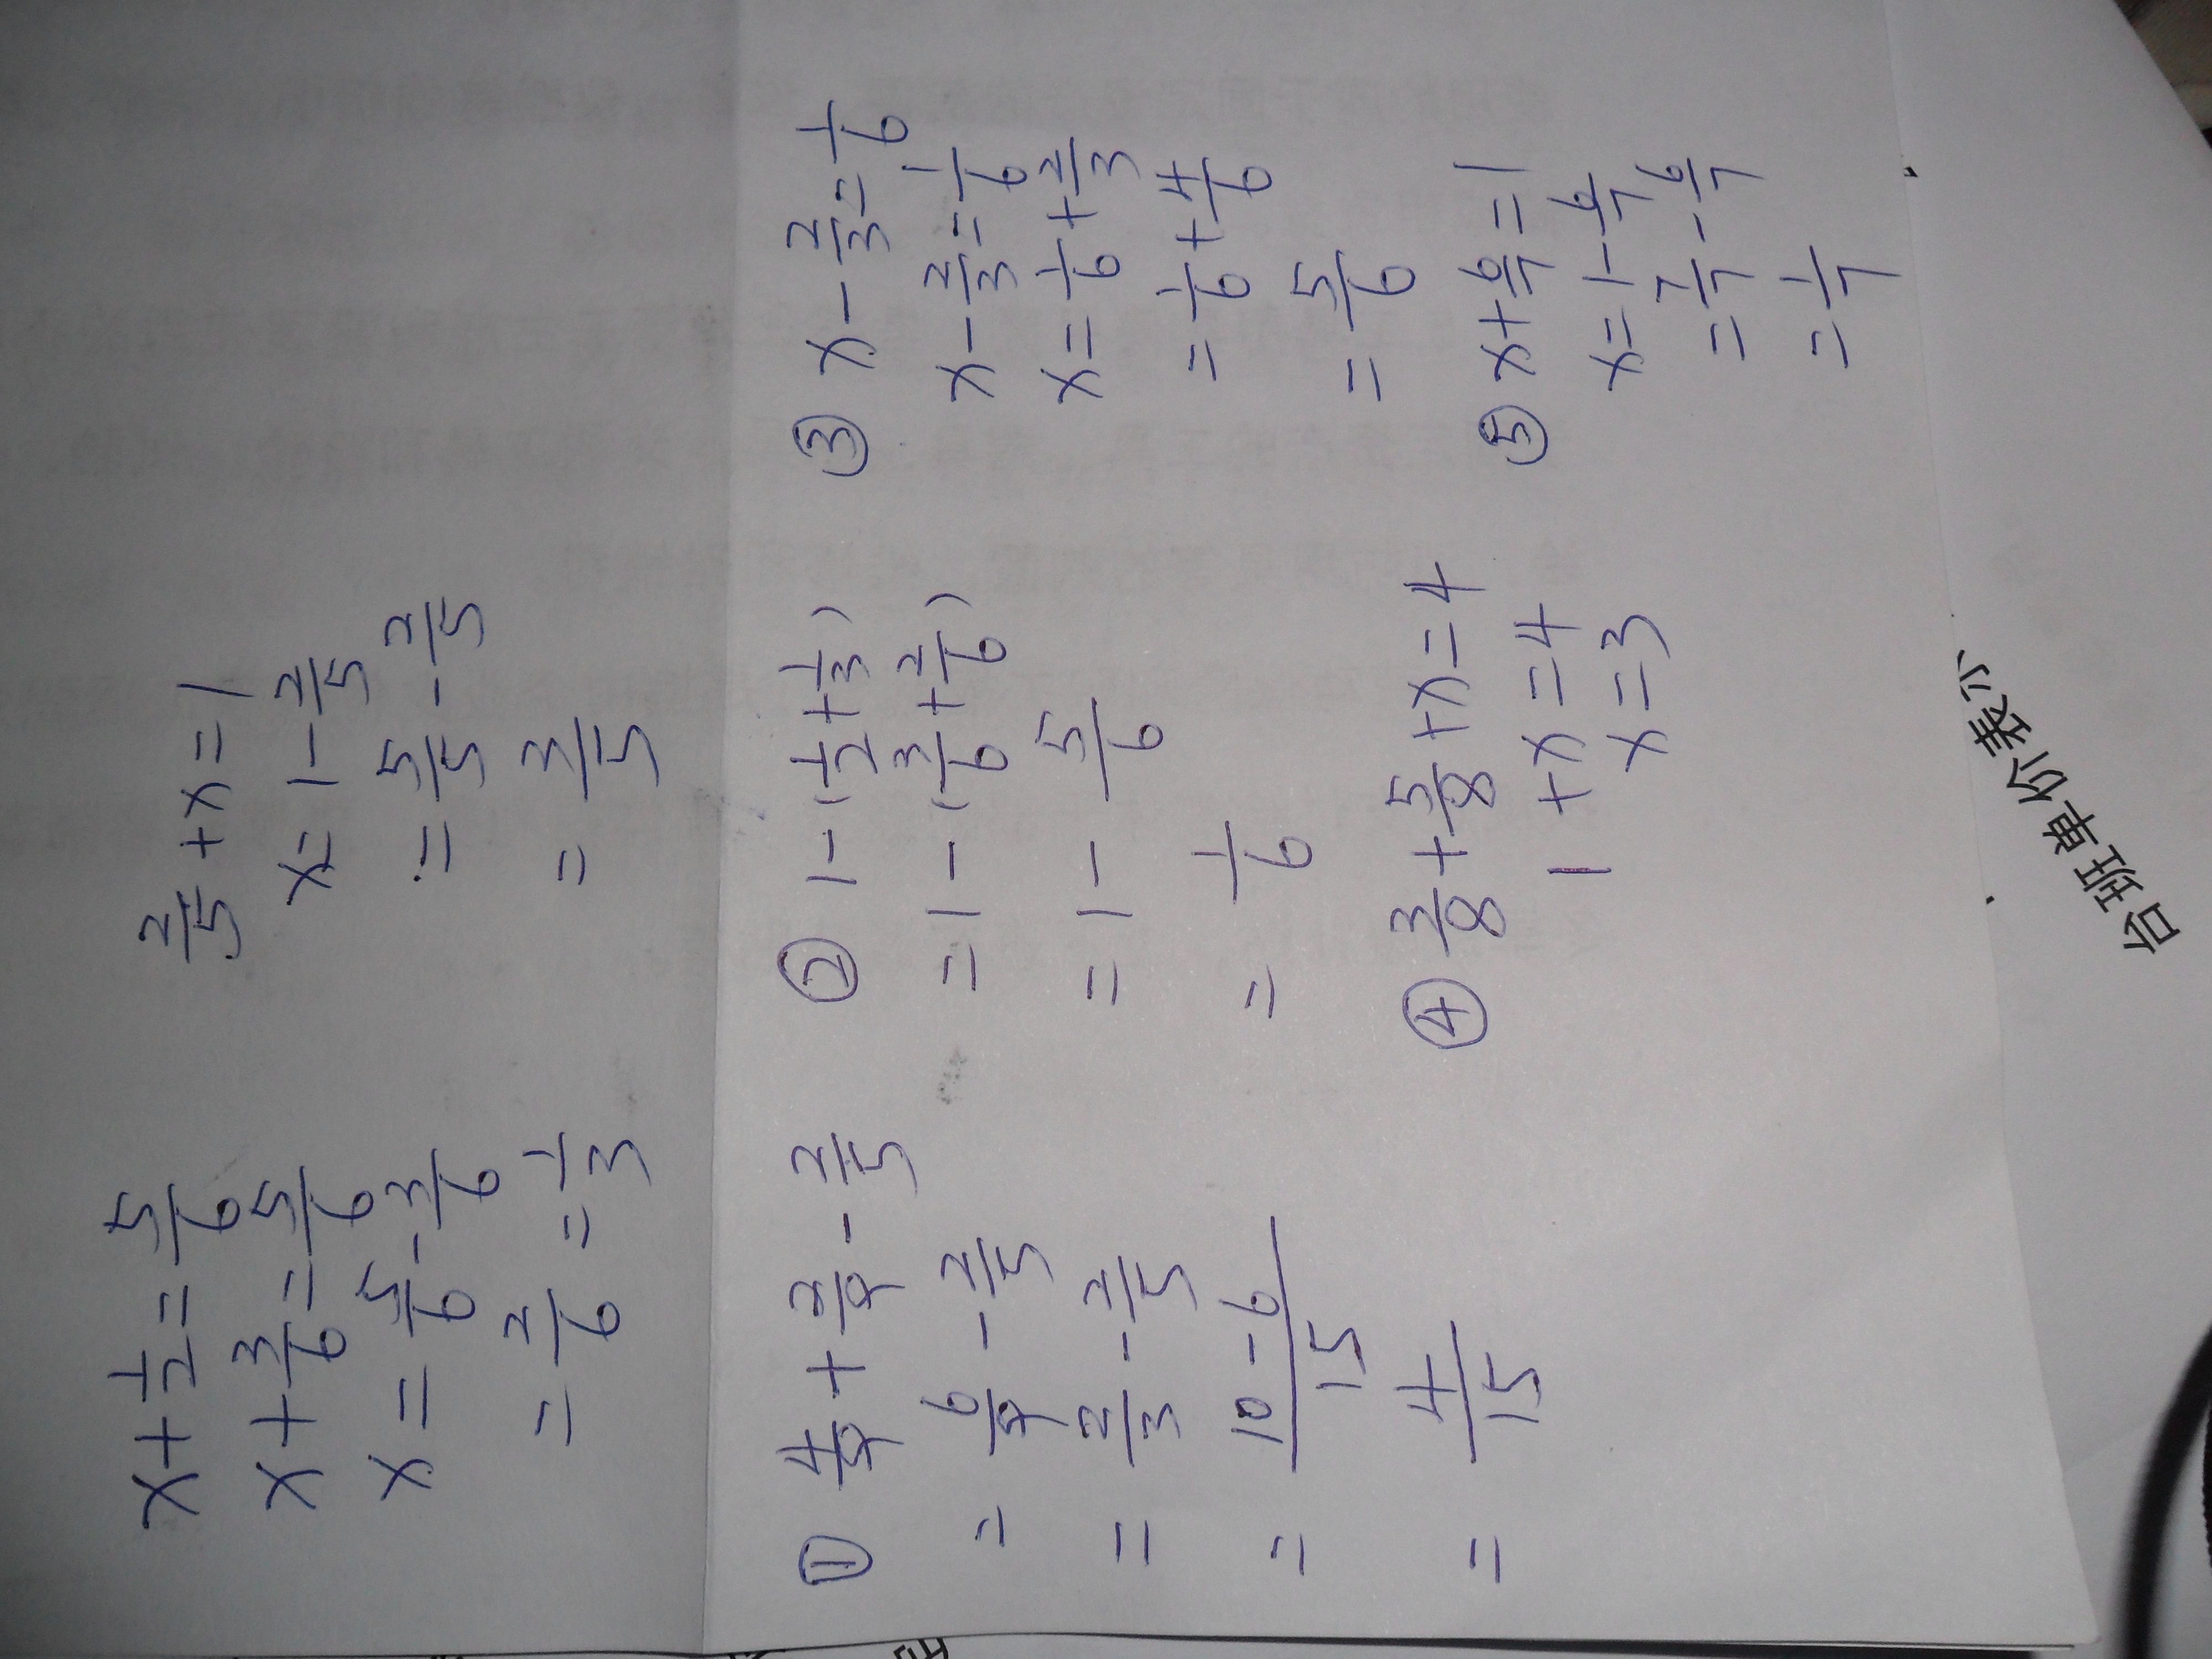 x+1/2=5/6
x+3/6=5/6
x=5/6-3/6
=2/6=1/3
2/5+x=1
x=1-2/5
=5/5-2/5
=3/5
① 4/9+2/9-2/5
=6/9-2/5
=2/3-2/5
=10-6/15
=4/15
② 1-(1/2+1/3)
=1-(3/6+2/6)
=1-5/6
=1/6
③ x-2/3=1/6
x-2/3=1/6
x=1/6+2/3
=1/6+4/6
=5/6
④ 3/8+5/8+x=4
1+x=4
x=3
⑤ x+6/7=1
x=1-6/7
=7/7-6/7
=1/7
台班单价表示